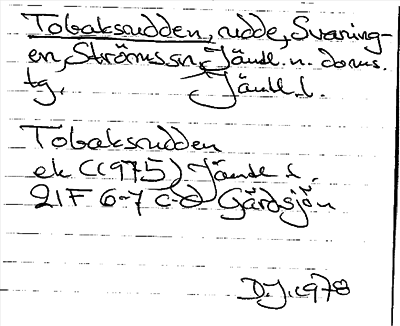 Tobaksudden, udde, Svaning-
en, Ströms sn, Jämtl. n. doms.
tg. Jämtl. l.
Tobaksudden
ek (1975) Jämtl l.
21F 6-7 c-d Gärdsjön
D.J. 1978